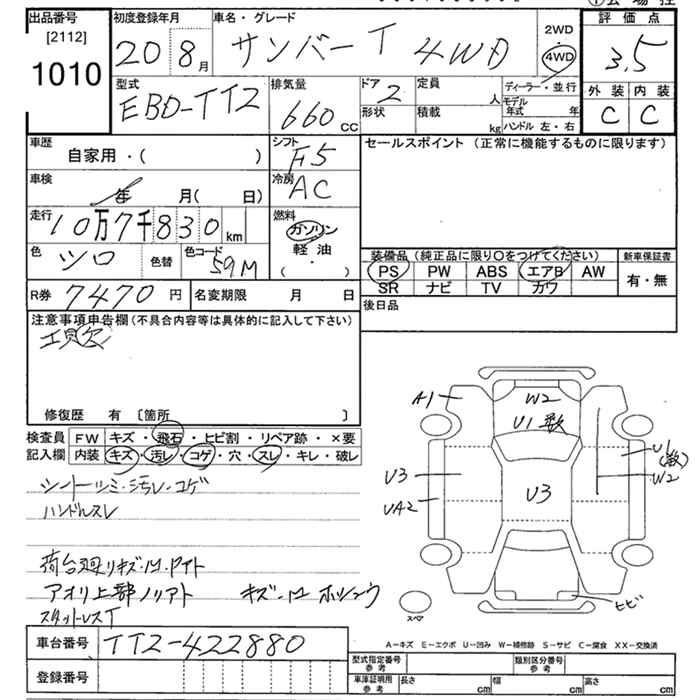 出品番号
[2112]
1010
初度登録年月
20 8月
車名・グレード
サンバー T 4WD
2WD
4WD
評価点
3.5
型式
EBD-TT2
排気量
660 cc
ドア
2
形状
定員
人
積載
kg
ディーラー・並行
モデル年式 年
ハンドル 左・右
外装 内装
C C
車歴
自家用・( )
シフト
F5
セールスポイント (正常に機能するものに限ります)
車検
年 月( 日)
冷房
AC
走行
10万7千830km
燃料
ガソリン
軽油
・
( )
色
シロ
色替
色コード
59M
装備品 (純正品に限り○をつけてください)
PS PW ABS エアB AW
SR ナビ TV カワ
新車保証書
有・無
R券 7470円
名変期限 月 日
後日品
注意事項申告欄(不具合内容等は具体的に記入して下さい)
工具欠
修復歴 有 〔箇所 〕
検査員記入欄
FW キズ・飛石・ヒビ割・リペア跡・×要
内装 キズ・汚レ・コゲ・穴・スレ・キレ・破レ
シートシミ・汚レ・コゲ
ハンドルスレ
アオリ上部ノリアト
スタットレスT
A1
W2
U1 数
U1
(数)
W2
U3
UA2
U3
ヒビ
スペア
A-キズ E-エクボ U-凹み W-補修跡 S-サビ C-腐食 XX-交換済
車台番号 TT2-422880
登録番号
型式指定番号
参考
類別区分番号
参考
車庫証明用
参考
長さ cm 幅 cm 高さ cm